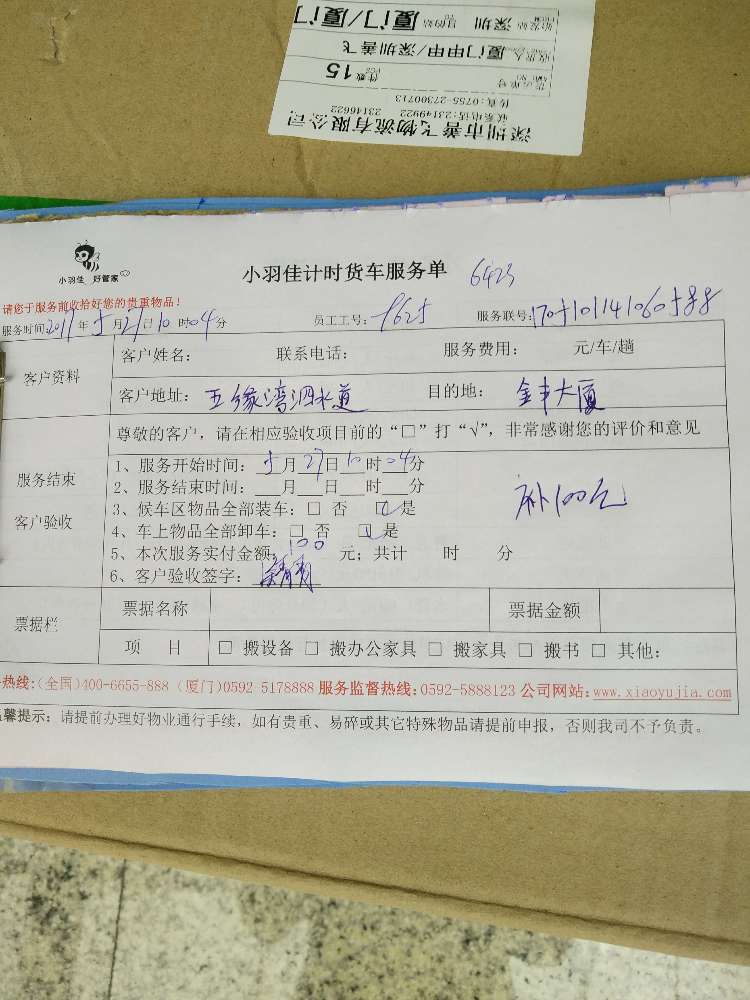 深圳市善飞物流有限公司
联系电话:23149922 23146622
传真:0755-27300713
件数 15
收货人 厦门甲甲/深圳善飞
始发站 深圳 目的站 厦门/厦门
小羽佳 好管家
小羽佳计时货车服务单 6423
请您于服务前收拾好您的贵重物品!
服务时间:2017年5月27日10时04分 员工工号: 服务联号:
客户资料
客户姓名: 联系电话: 服务费用: 元/车/趟
客户地址: 五缘湾泗水道 目的地: 金丰大厦
服务结束
客户验收
尊敬的客户,请在相应验收项目前的“□”打“√”,非常感谢您的评价和意见
1、服务开始时间: 5月27日10时04分
2、服务结束时间:___月___日___时___分
3、候车区物品全部装车:□ 否 ☑ 是
4、车上物品全部卸车:□ 否 ☑ 是
5、本次服务实付金额: 100 元;共计 时 分
6、客户验收签字:
补100元
票据栏
票据名称 票据金额
项 目 □ 搬设备 □ 搬办公家具 □ 搬家具 □ 搬书 □ 其他:
热线:(全国)400-6655-888 (厦门)0592 5178888 服务监督热线:0592-5888123 公司网站:www.xiaoyujia.com
馨提示:请提前办理好物业通行手续,如有贵重、易碎或其它特殊物品请提前申报,否则我司不予负责。